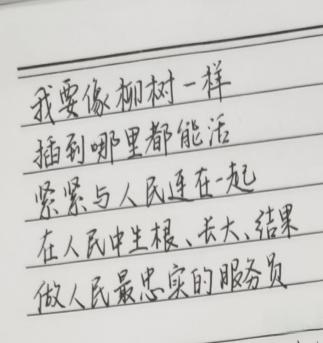 我要像柳树一样
插到哪里都能活
紧紧与人民连在一起
在人民中生根、长大、结果
做人民最忠实的服务员